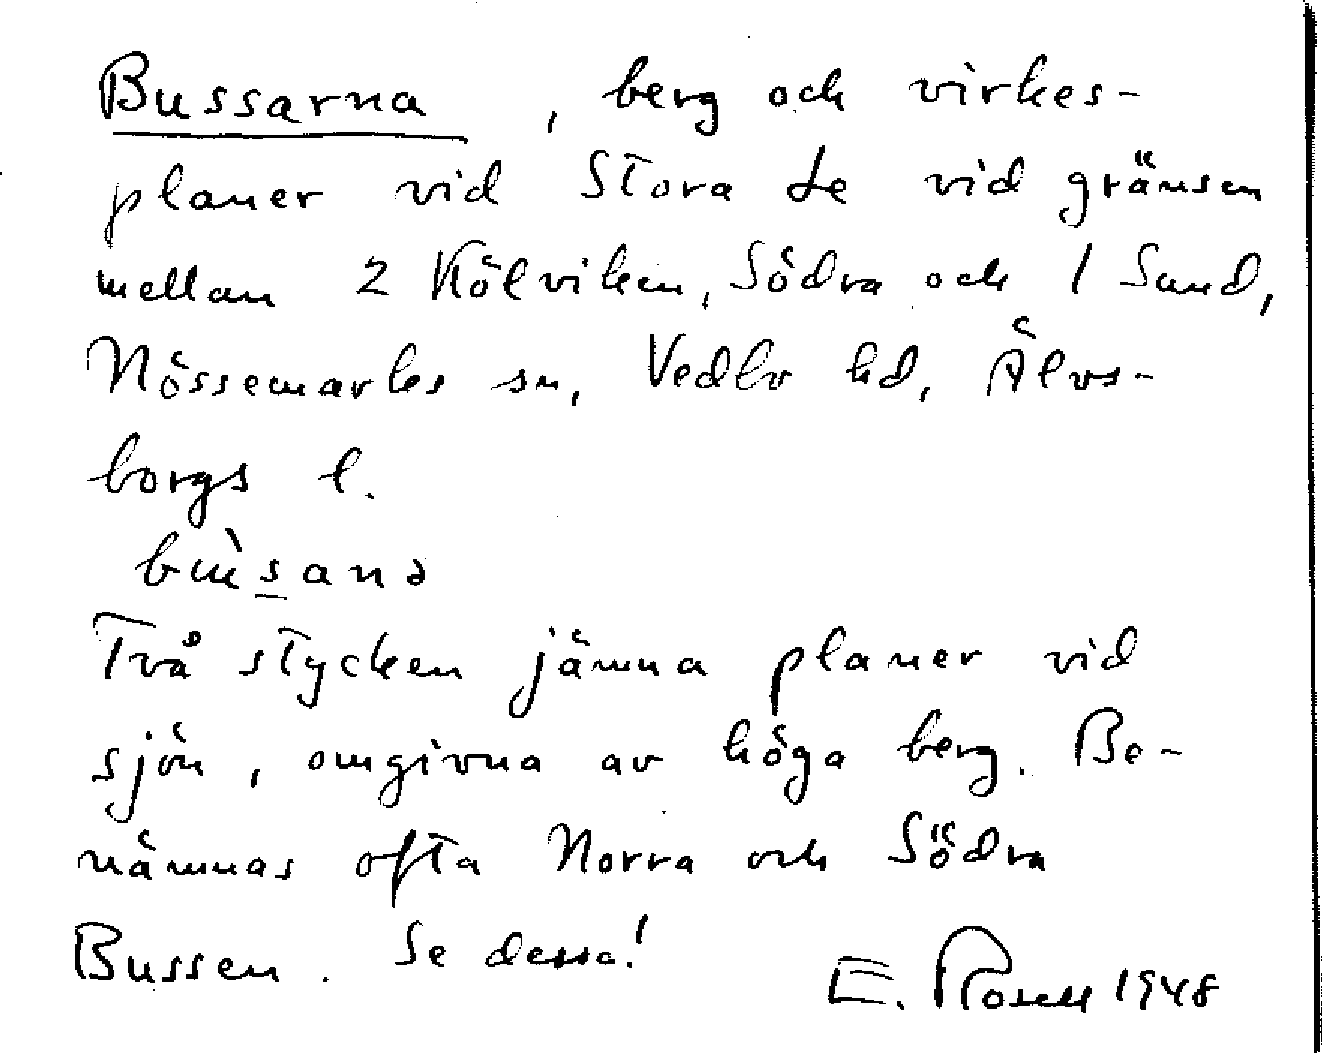 Bussarna , berg och virkes-
planer vid Stora Le vid gränsen
mellan 2 Kölviken, Södra och 1 Sund,
Nössemarks sn, Vedbo hd, Älvs-
borgs l.
bu̇̀sana
Två stycken jämna planer vid
sjön, omgivna av höga berg. Be-
nämnas ofta Norra och Södra
Bussen. Se dessa!
E. Rosell 1948